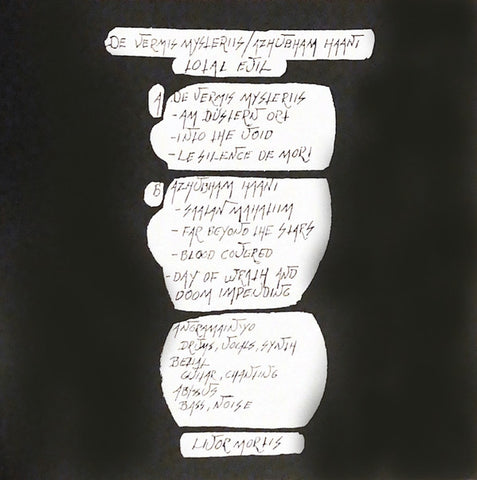 DE VERMIS MYSTERIIS/AZHUBHAM HAANI
TOTAL EVIL
A DE VERMIS MYSTERIIS
-AM DÜSTERN ORT
-INTO THE VOID
-LE SILENCE DE MORT
B AZHUBHAM HAANI
-SAATAN MAHALIIM
-FAR BEYOND THE STARS
-BLOOD COVERED
-DAY OF WRATH AND
DOOM IMPENDING
ANGRAMAINYO
DRUMS, VOCALS, SYNTH
BELIAL
GUITAR, CHANTING
ABISSUS
BASS, NOISE
LIVOR MORTIS